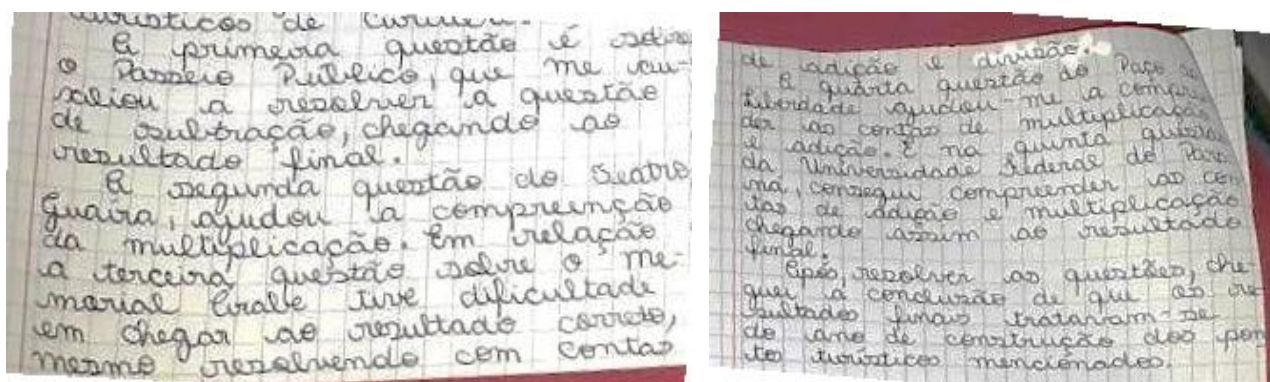 turísticos de Curitiba.
A primeira questão é sobre
o Passeio Público, que me au-
xiliou a resolver a questão
de subtração, chegando ao
resultado final.
A segunda questão do Teatro
Guaíra, ajudou a compreenção
da multiplicação. Em relação
a terceira questão sobre o me-
morial Árabe tive dificultade
em chegar ao resultado correto,
mesmo resolvendo com contas
de adição e divisão.
A quarta questão do Paço da
Liberdade ajudou-me a compreen
der as contas de multiplicação
e adição. E na quinta questão
da Universidade Federal do Para
ná, consegui compreender as con
tas de adição e multiplicação
chegando assim ao resultado
final.
Após, resolver as questões, che
guei a conclusão de que os re
sultados finais tratavam-se
do ano de construção dos pon
tos turísticos mencionados.